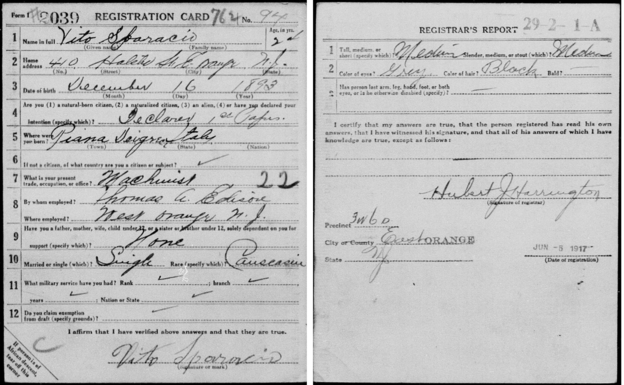 Form 1 2039 REGISTRATION CARD 764 No. 94
1 Name in full Vito Sparacio Age, in yrs. 24
(Given name) (Family name)
2 Home address 40 St. E. Orange N. J.
(No.) (Street) (City) (State)
3 Date of birth December 16 1893
(Month) (Day) (Year)
4 Are you (1) a natural-born citizen, (2) a naturalized citizen, (3) an alien, (4) or have you declared your
intention (specify which)? Declared 1st Papers
5 Where were you born? Piana Italy
(Town) (State) (Nation)
6 If not a citizen, of what country are you a citizen or subject?
7 What is your present trade, occupation, or office? Machinist 22
8 By whom employed? Thomas A. Edison
Where employed? West Orange N. J.
9 Have you a father, mother, wife, child under 12, or a sister or brother under 12, solely dependent on you for
support (specify which)? None
10 Married or single (which)? Single Race (specify which)? Caucasian
11 What military service have you had? Rank ; branch
years ; Nation or State
12 Do you claim exemption from draft (specify grounds)?
I affirm that I have verified above answers and that they are true.
Vito Sparacio
(Signature or mark)
If person is of African descent, tear off this corner
C
REGISTRAR'S REPORT 29-2-1-A
1 Tall, medium, or short (specify which)? Medium Slender, medium, or stout (which)? Medium
2 Color of eyes? Grey Color of hair? Black Bald?
3 Has person lost arm, leg, hand, foot, or both eyes, or is he otherwise disabled (specify)?
I certify that my answers are true, that the person registered has read his own
answers, that I have witnessed his signature, and that all of his answers of which I have
knowledge are true, except as follows:
Hubert J. Harrington
(Signature of registrar)
Precinct 3 W 6 D
City or County East ORANGE
State N. J.
JUN -5 1917
(Date of registration)